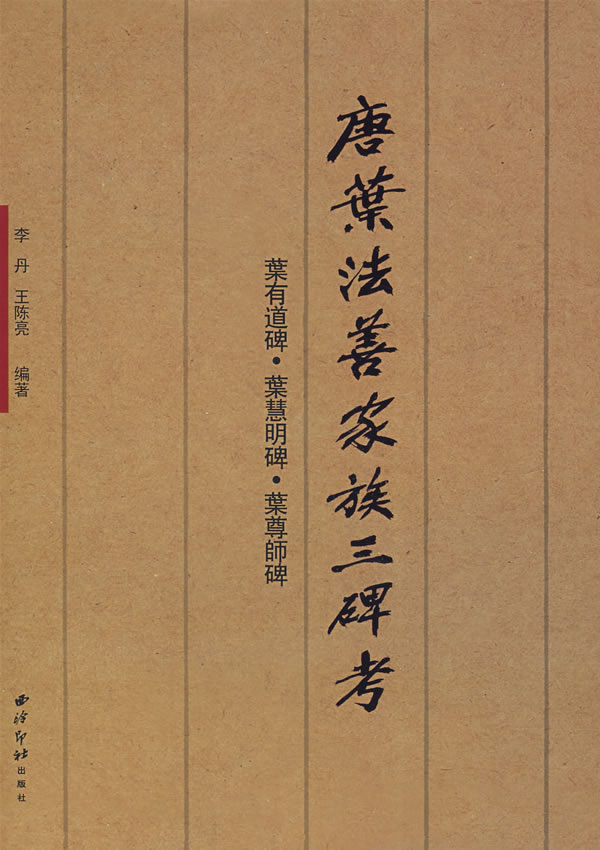 唐葉法善家族三碑考
葉有道碑·葉慧明碑·葉尊師碑
李丹 王陈亮 编著
西泠印社出版社